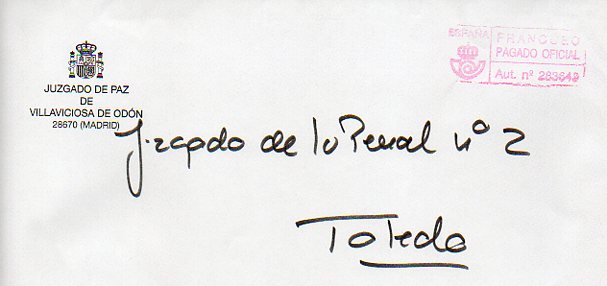 JUZGADO DE PAZ
DE
VILLAVICIOSA DE ODÓN
28670 (MADRID)
ESPAÑA
FRANQUEO
PAGADO OFICIAL
Aut. nº 283642
Juzgado de lo Penal nº 2
Toledo